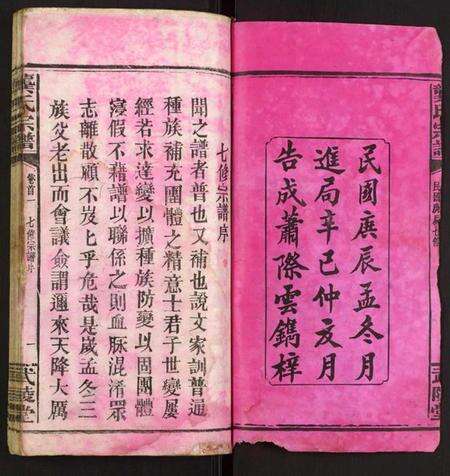 民國庚辰孟冬月
進局辛巳仲交月
告成蕭際雲鐫梓
七修宗譜序
聞之譜者普也又補也說文家訓普通
種族補充團體之精意士君子世變屢
經若求達變以擴種族防變以固團體
寖假不藉譜以聯係之則血脈混淆眾
志離散顧不岌乎危哉是歲孟冬三
族父老出而會議僉謂邇來天降大厲
龔氏宗譜
卷首一
七修宗譜序
一
武陵堂
龔氏宗譜
武陵堂